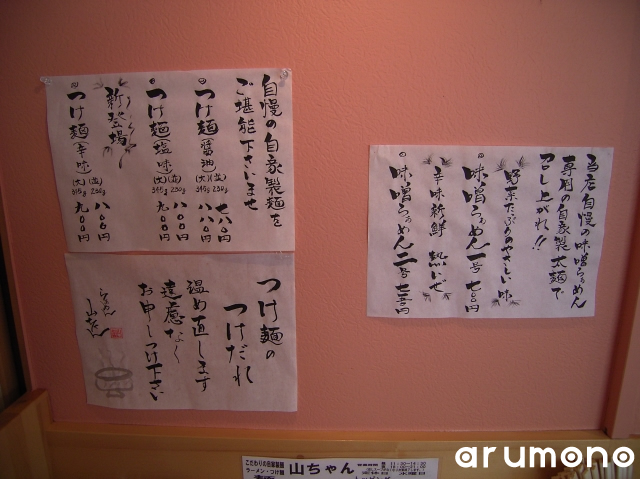 自慢の自家製麺を
ご堪能下さいませ
つけ麺(醤油)
(並)230g 七八〇円
(大)345g 八八〇円
つけ麺(塩味)
(並)230g 八〇〇円
(大)345g 九〇〇円
新登場
つけ麺(辛味)
(並)230g 八〇〇円
(大)345g 九〇〇円
つけ麺の
つけだれ
温め直します
遠慮なく
お申しつけ下さい
らぁめん
山ちゃん
当店自慢の味噌らぁめん
専用の自家製太麺で
召し上がれ!!
野菜たっぷりのやさしい味
味噌らぁめん一号 七〇〇円
辛味新鮮 熱いぜ
味噌らぁめん二号 七五〇円
こだわりの自家製麺
ラーメン・つけ麺
山ちゃん
arumono